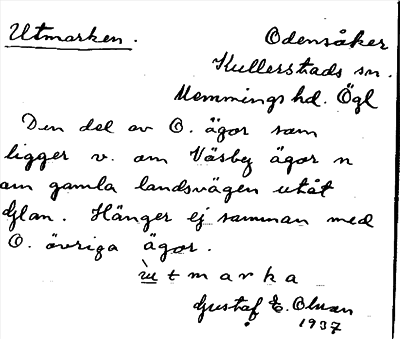 Utmarken.
Odensåker
Kullerstads sn.
Memmings hd. Ögl
Den del av O. ägor som
ligger v. om Väsby ägor n
om gamla landsvägen utåt
Glan. Hänger ej samman med
O. övriga ägor.
ùtmarka
Gustaf E. Olsson
1937